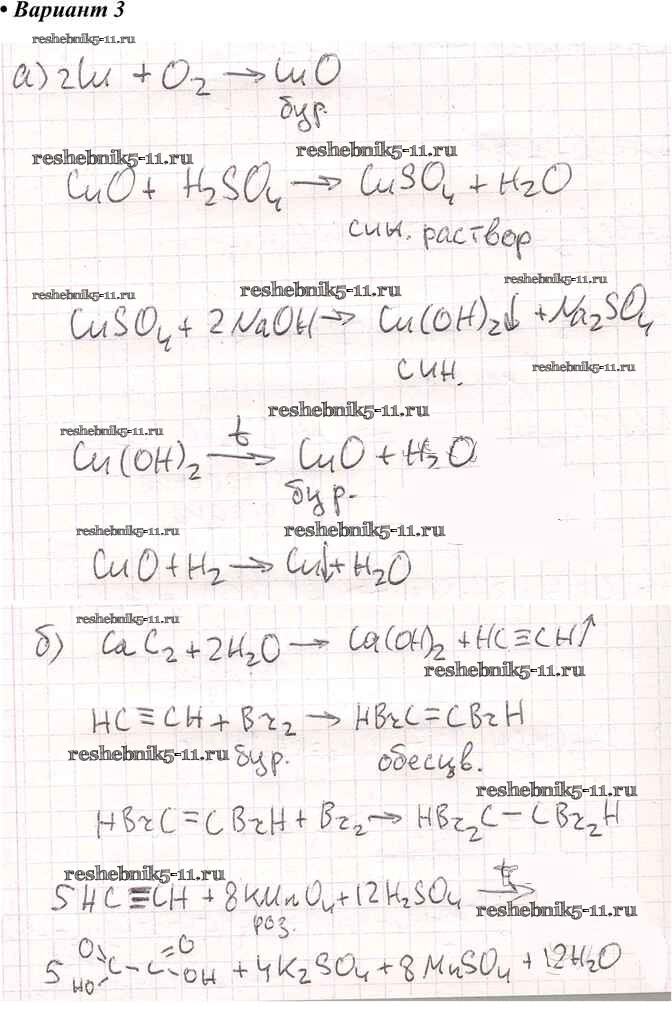 • Вариант 3
reshebnik5-11.ru
а) 2Cu + O₂ → CuO
бур.
reshebnik5-11.ru reshebnik5-11.ru
CuO + H₂SO₄ → CuSO₄ + H₂O
син. раствор
reshebnik5-11.ru reshebnik5-11.ru reshebnik5-11.ru
CuSO₄ + 2NaOH → Cu(OH)₂↓ + Na₂SO₄
син. reshebnik5-11.ru
reshebnik5-11.ru reshebnik5-11.ru
Cu(OH)₂ →t CuO + H₂O
бур-
reshebnik5-11.ru reshebnik5-11.ru
CuO + H₂ → Cu↓ + H₂O
reshebnik5-11.ru
б) CaC₂ + 2H₂O → Ca(OH)₂ + HC≡CH↑
reshebnik5-11.ru
HC≡CH + Br₂ → HBrC=CBrH
reshebnik5-11.ru бур. обесцв.
reshebnik5-11.ru
HBrC=CBrH + Br₂ → HBr₂C–CBr₂H
reshebnik5-11.ru
5HC≡CH + 8KMnO₄ + 12H₂SO₄ →t
роз. reshebnik5-11.ru
5 O=C(HO)–C(=O)OH + 4K₂SO₄ + 8MnSO₄ + 12H₂O